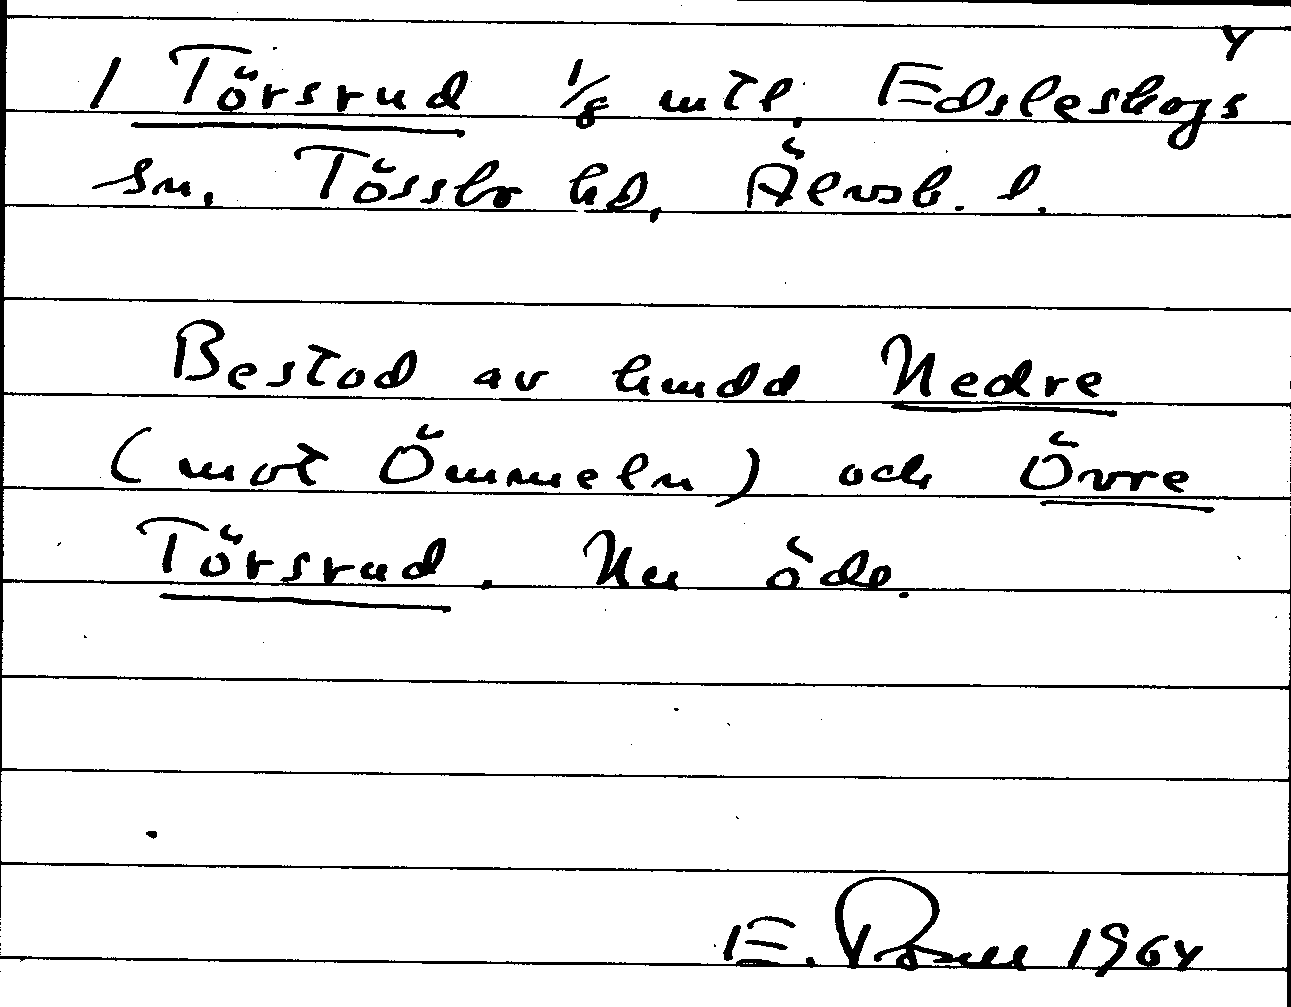 Y
1 Törsrud 1/8 mtl, Edsleskogs
sn, Tössbo hd, Älvsb. l.
Bestod av hmdd Nedre
(mot Ömmeln) och Övre
Törsrud. Nu öde.
E. 1964